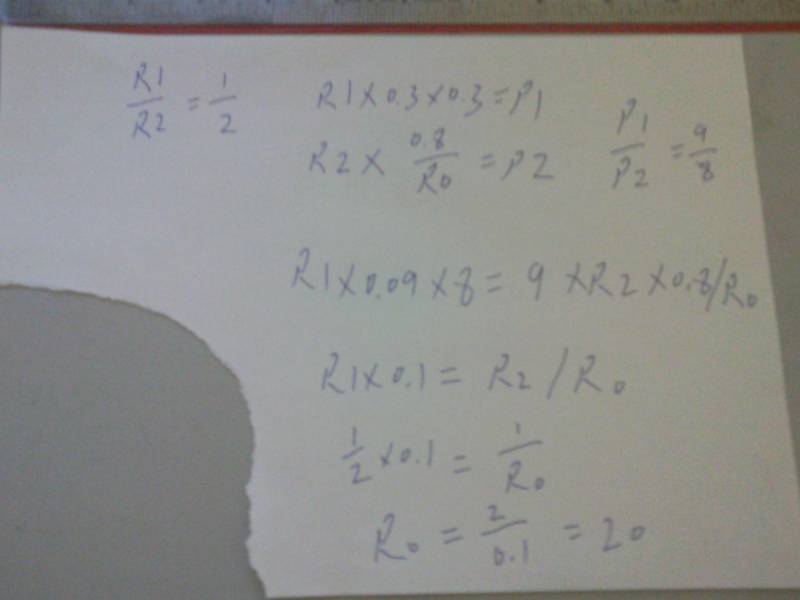 R1/R2 = 1/2
R1×0.3×0.3=P1
R2× 0.8/R0 = P2
P1/P2 = 9/8
R1×0.09×8= 9×R2×0.8/R0
R1×0.1= R2/R0
1/2 ×0.1 = 1/R0
R0 = 2/0.1 = 20